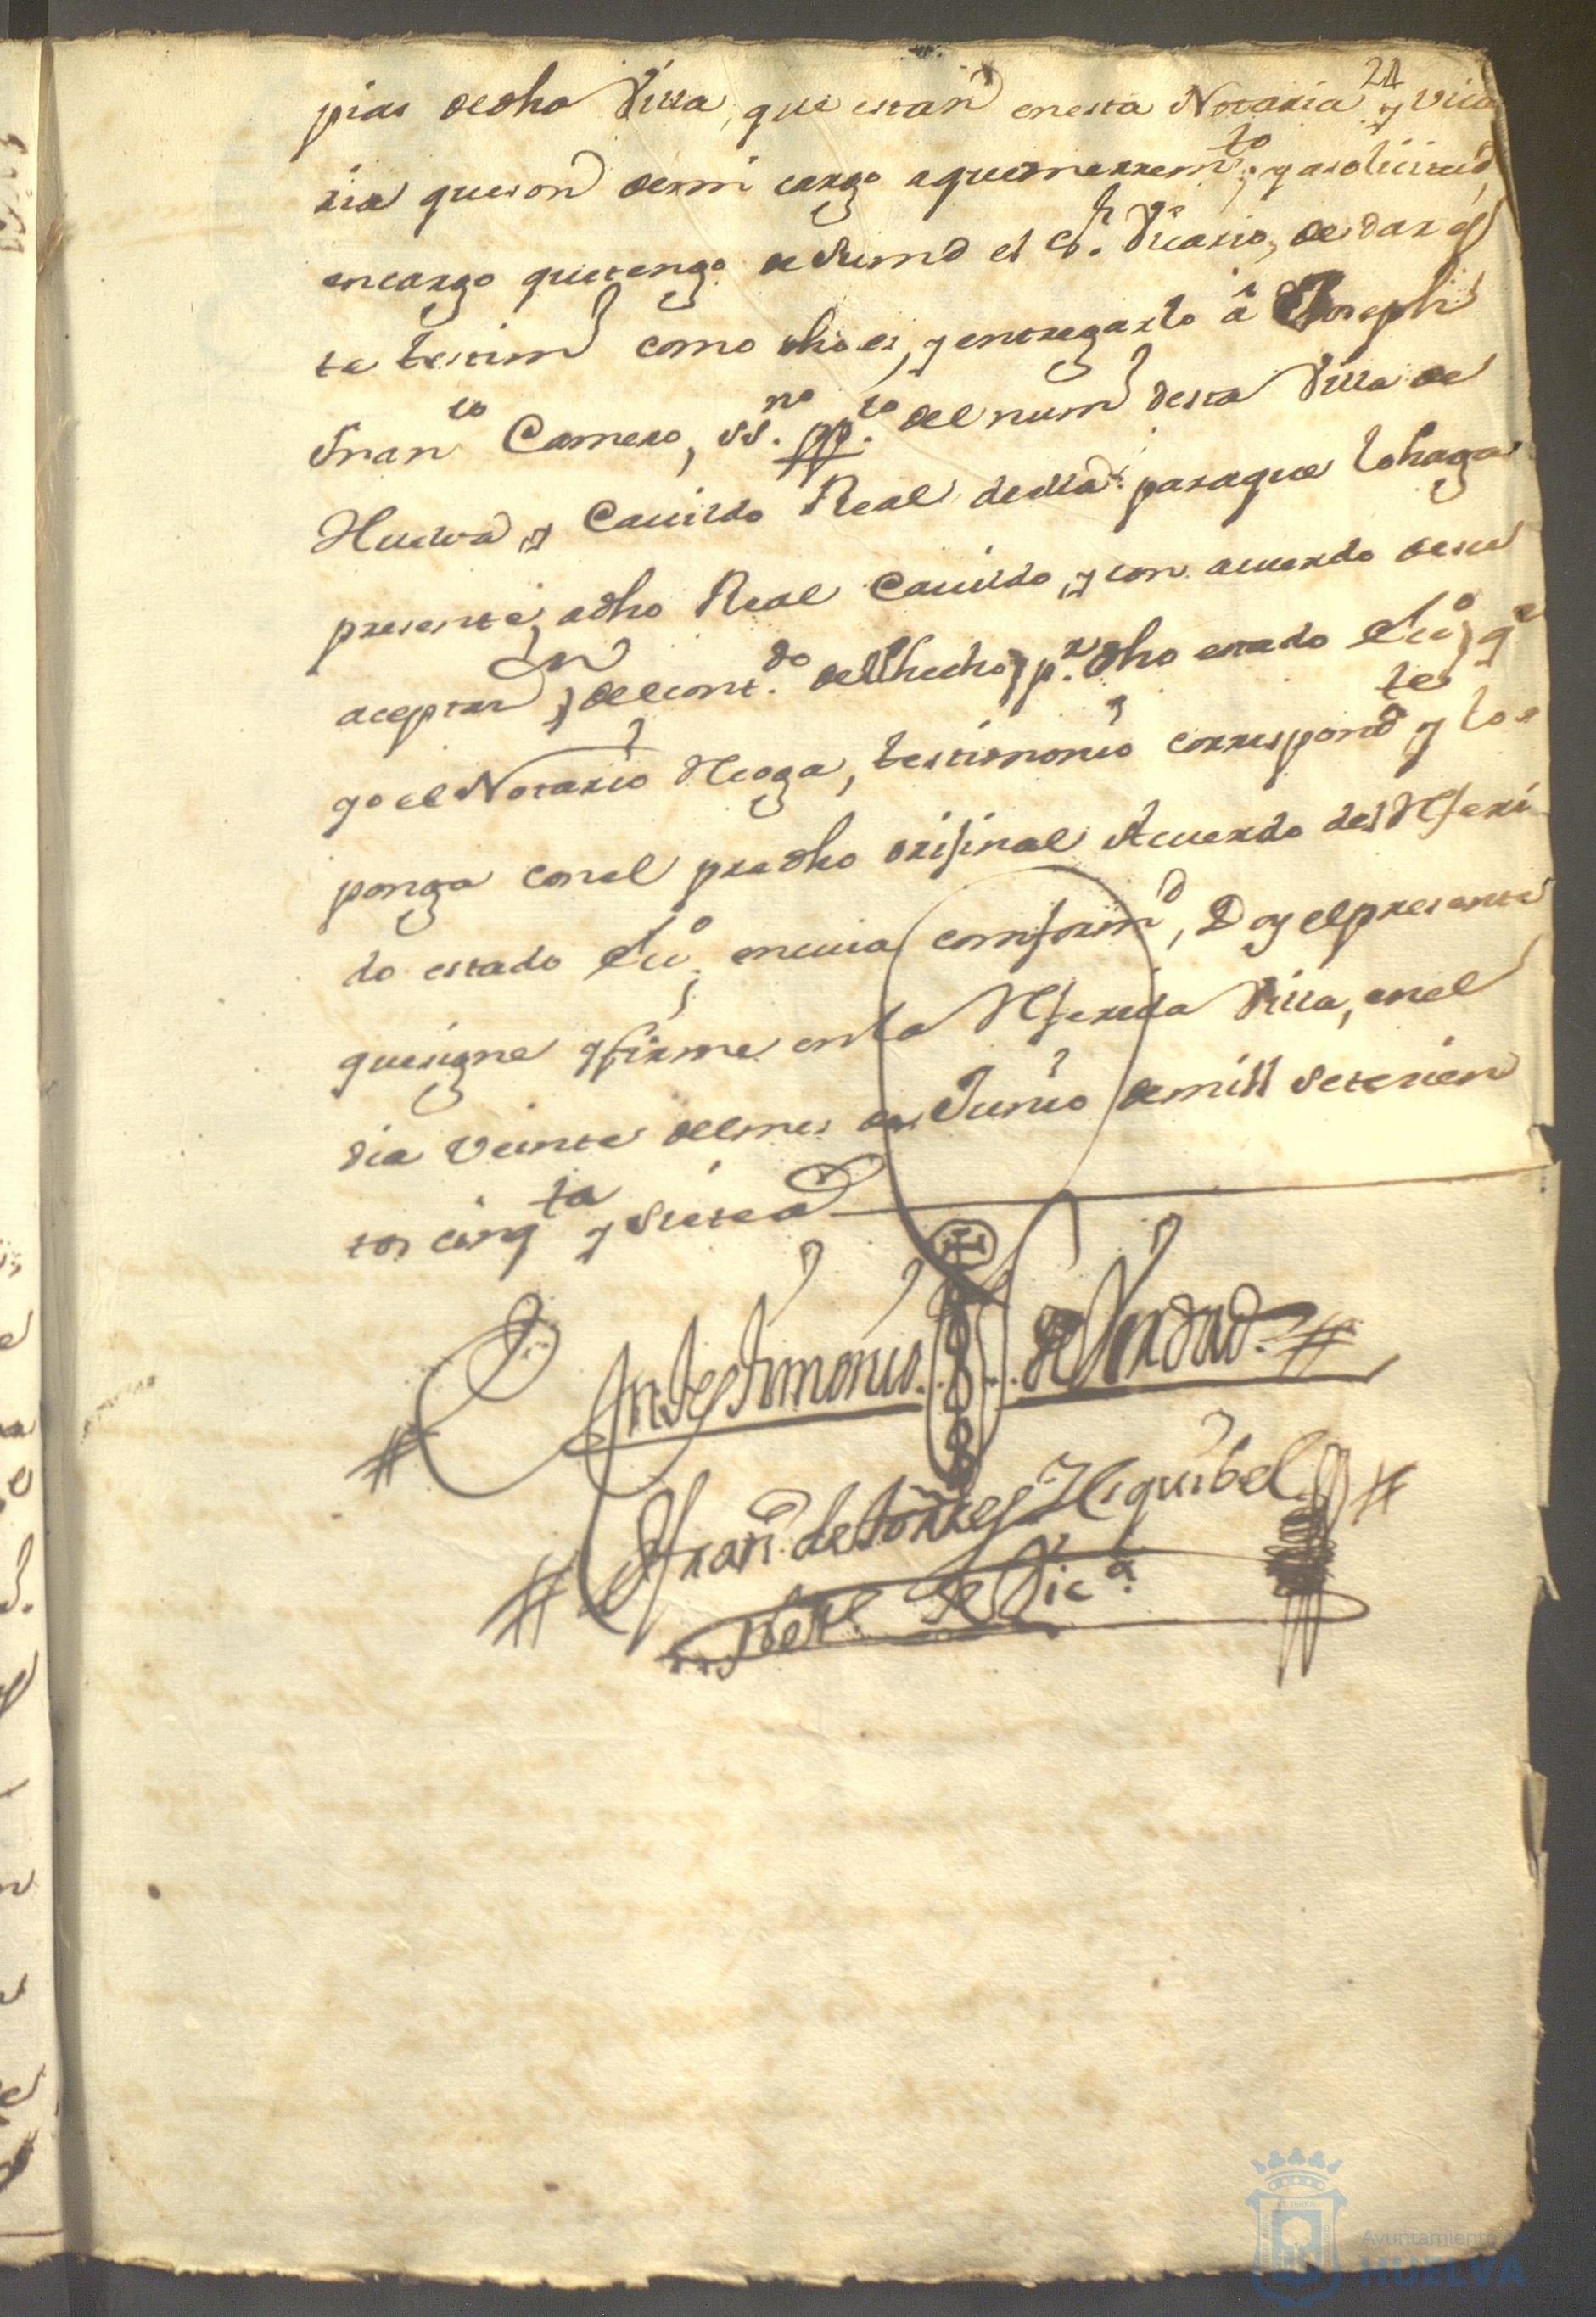 21
pias dedha Villa, que estan enesta Notaria, y Vica
ria queson demi cargo aqueme rrem.to y asolicitud,
encargo quetengo de Sumd el S.r Vicario, de dar es
te testim como dho es, y entregarlo â Joseph
Fran.co Camero, ss.no pp.co del num desta Villa de
Huelva y Cavildo Real della paraque lohaga
presente, adho Real Cavildo, y con acuerdo desu
aceptaz.on, delcont.do del hecho p.r dho estado Ecc.o, q.e
yo el Notario Hega, testimonio correspond.te y lo
ponga conel predho orijinal Acuerdo del Rferi
do estado Ecc.o; encuia conform.d, Doy elpresente
quesigne yfirme enla Rferida Villa, enel
dia Veinte delmes de Junio demill Setecien
tos cinq.ta y Siete a
En testimonio de Verdad
Fran.co de torres Hiquibel
Nott.o de Vic.a
Ayuntamiento de
HUELVA